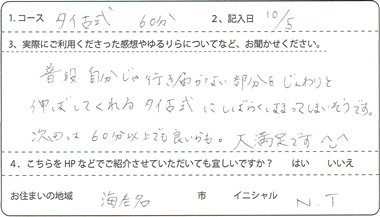 1.コース　タイ古式　60分　2、記入日　10/5
3、実際にご利用くださった感想やゆるりらについてなど、お聞かせください。
普段自分じゃ行き届かない部分をじんわりと
伸ばしてくれるタイ古式にしばらくはまってしまいそうです。
次回は60分以上でも良いかも。大満足です^_^
4．こちらをHPなどでご紹介させていただいても宜しいですか？　はい　いいえ
お住まいの地域　海老名　市　イニシャル　N.T